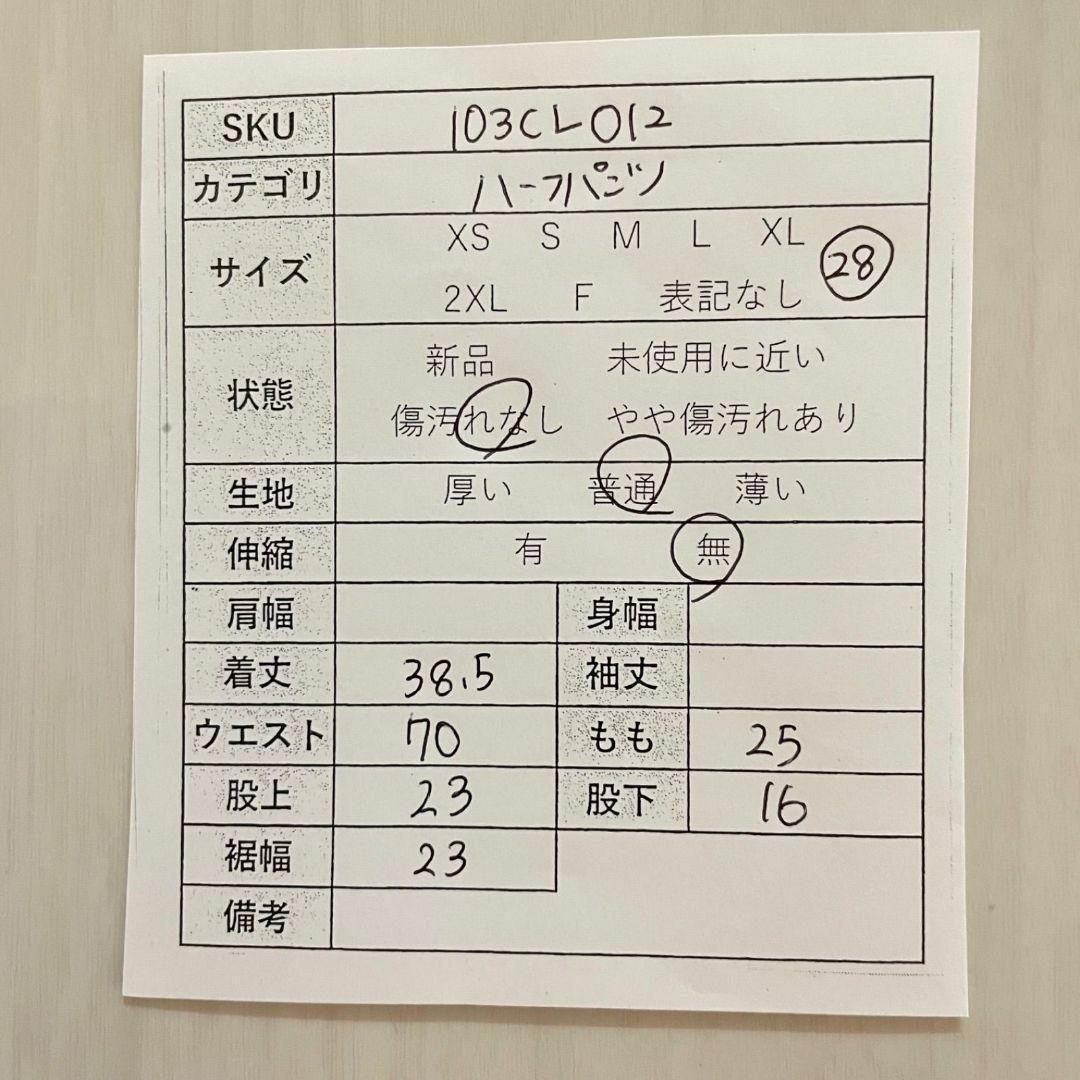 SKU 103CL012
カテゴリ ハーフパンツ
サイズ XS S M L XL 28
2XL F 表記なし
状態 新品 未使用に近い
傷汚れなし やや傷汚れあり
生地 厚い 普通 薄い
伸縮 有 無
肩幅 身幅
着丈 38.5 袖丈
ウエスト 70 もも 25
股上 23 股下 16
裾幅 23
備考